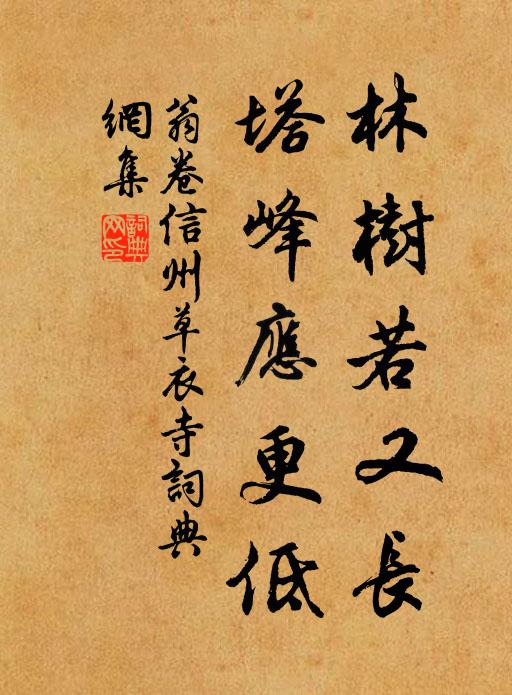 林樹若又長
塔峰應更低
翁卷信州草衣寺詞典
網集
詞典網印